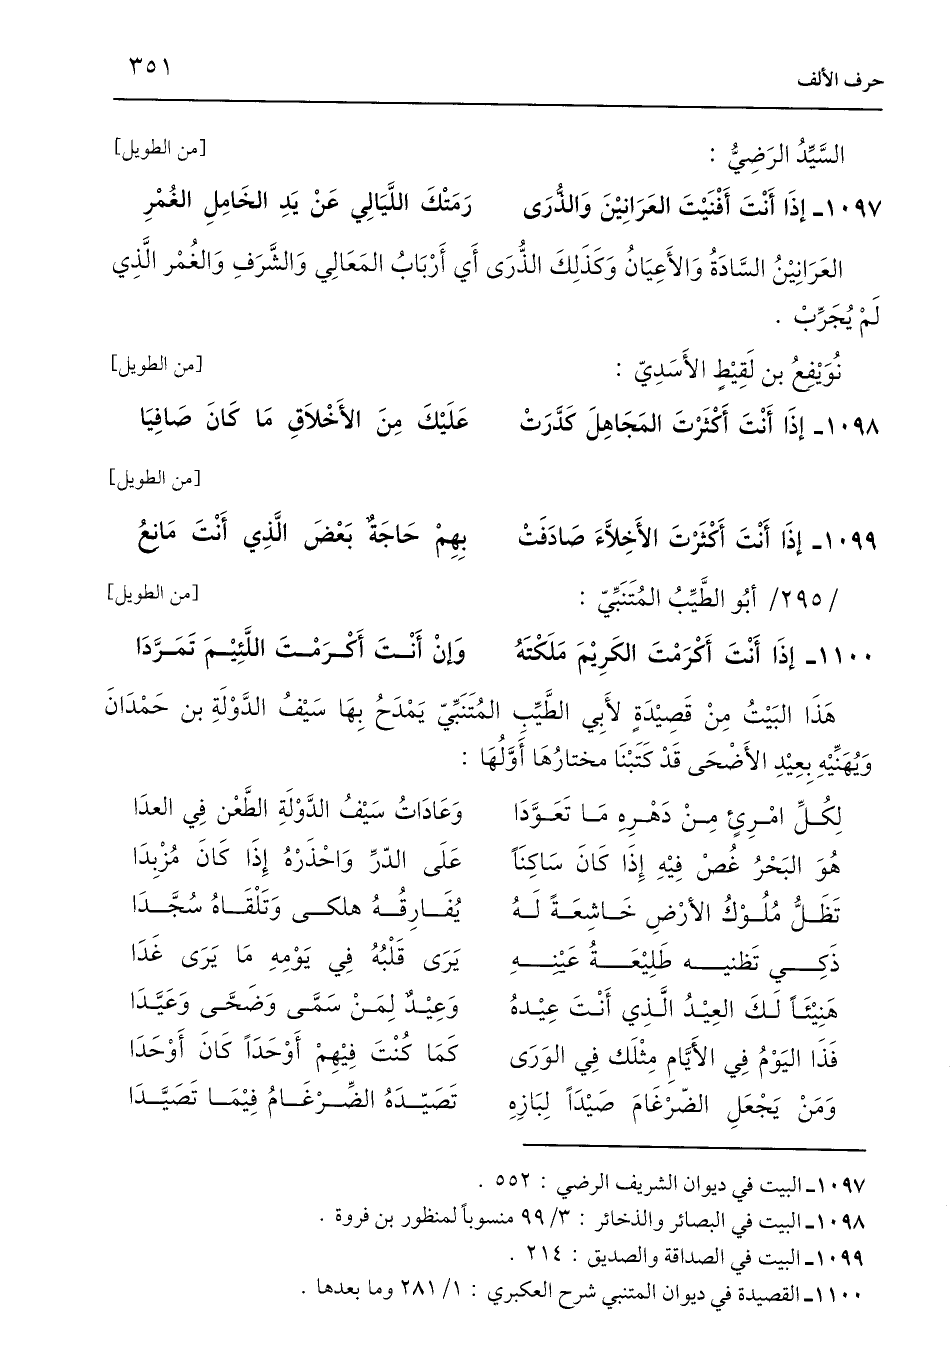 حرف الألف ٣٥١
السَّيِّدُ الرَضِيُّ : [من الطويل]
١٠٩٧ـ إِذَا أَنْتَ أَفْنَيْتَ العَرَانِيْنَ وَالذُّرَى رَمَتْكَ اللَّيَالِي عَنْ يَدِ الخَامِلِ الغُمْرِ
العَرَانِيْنُ السَّادَةُ وَالأَعيَانُ وَكَذَلِكَ الذُّرَى أَي أَرْبَابُ المَعَالِي وَالشَّرَفِ وَالغُمْر الَّذِي
لَمْ يُجَرِّبْ .
نُوَيْفِعُ بن لَقِيْطٍ الأَسَدِيّ : [من الطويل]
١٠٩٨ـ إِذَا أَنْتَ أَكْثَرْتَ المَجَاهِلَ كَدَّرَتْ عَلَيْكَ مِنَ الأَخْلاَقِ مَا كَانَ صَافِيَا
[من الطويل]
١٠٩٩ـ إِذَا أَنْتَ أَكْثَرْتَ الأَخِلاَّءَ صَادَفَتْ بِهِمْ حَاجَةٌ بَعْضَ الَّذِي أَنْتَ مَانِعُ
/٢٩٥/ أَبُو الطَّيِّبُ المُتَنَبِّيّ : [من الطويل]
١١٠٠ـ إِذَا أَنْتَ أَكْرَمْتَ الكَرِيْمَ مَلَكْتَهُ وَإِنْ أَنْتَ أَكْرَمْتَ اللَّئِيْمَ تَمَرَّدَا
هَذَا البَيْتُ مِنْ قَصِيْدَةٍ لأَبِي الطَّيِّبِ المُتَنَبِّيّ يَمْدَحُ بِهَا سَيْفُ الدَّوْلَةِ بن حَمْدَانَ
وَيُهَنِّيْهِ بِعِيْدِ الأَضْحَى قَدْ كَتَبْنَا مختارُهَا أَوَّلُهَا :
لِكُلِّ امْرِئٍ مِنْ دَهْرِهِ مَا تَعَوَّدَا وَعَادَاتُ سَيْفُ الدَّوْلَةِ الطَّعْن فِي العدَا
هُوَ البَحْرُ غُصْ فِيْهِ إِذَا كَانَ سَاكِنَاً عَلَى الدّرِّ وَاحْذَرْهُ إِذَا كَانَ مُزْبِدَا
تَظَلُّ مُلُوْكُ الأَرْضِ خَاشِعَةً لَهُ يُفَارِقُهُ هلكى وَتَلْقَاهُ سُجَّدَا
ذَكِي تَظنيه طَلِيْعَةُ عَيْنِهِ يَرَى قَلْبُهُ فِي يَوْمِهِ مَا يَرَى غَدَا
هَنِيْئَاً لَكَ العِيْدُ الَّذِي أَنْتَ عِيْدهُ وَعِيْدٌ لِمَنْ سَمَّى وَضَحَّى وَعَيَّدَا
فَذَا اليَوْمُ فِي الأَيَّامِ مِثْلكَ فِي الوَرَى كَمَا كُنْتَ فِيْهِمْ أَوْحَدَاً كَانَ أَوْحَدَا
وَمَنْ يَجْعَلِ الضّرْغَامَ صَيْدَاً لِبَازِهِ تَصَيّدَهُ الضّرْغَامُ فِيْمَا تَصَيَّدَا
١٠٩٧ـ البيت في ديوان الشريف الرضي : ٥٥٢ .
١٠٩٨ـ البيت في البصائر والذخائر : ٣/ ٩٩ منسوباً لمنظور بن فروة .
١٠٩٩ـ البيت في الصداقة والصديق : ٢١٤ .
١١٠٠ـ القصيدة في ديوان المتنبي شرح العكبري : ١/ ٢٨١ وما بعدها .